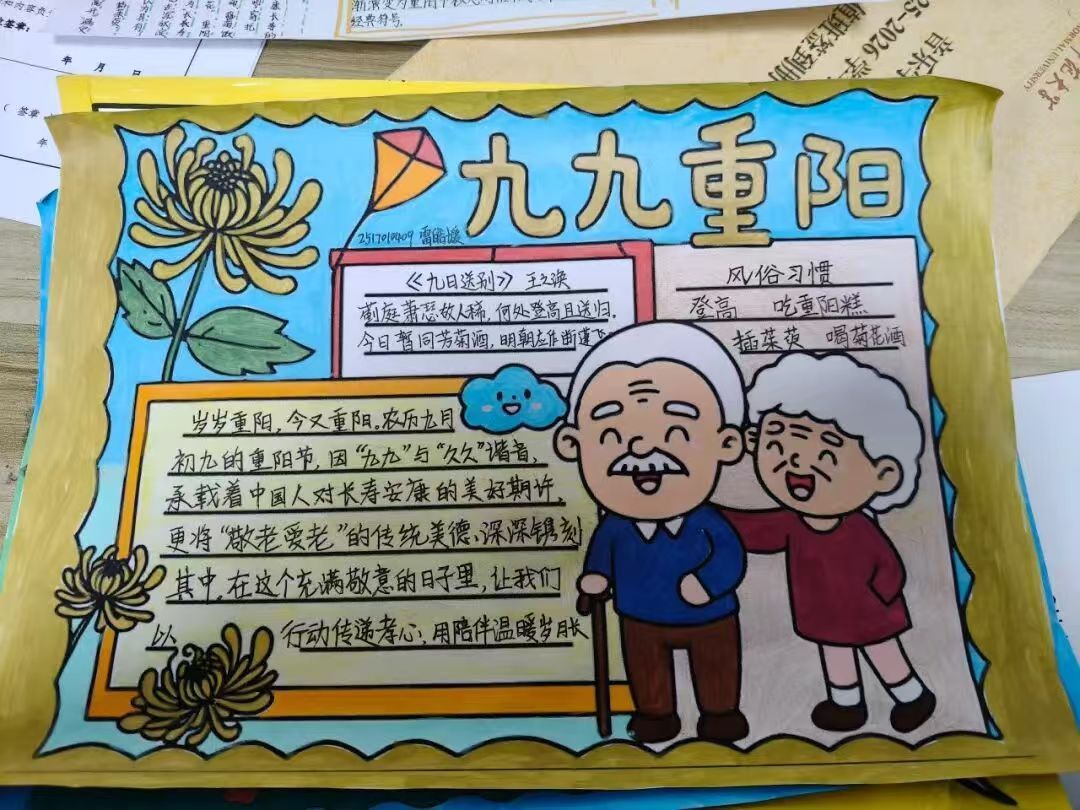 九九重阳
2517010409 雷皓媛
《九日送别》 王之涣
蓟庭萧瑟故人稀，何处登高且送归。
今日暂同芳菊酒，明朝应作断蓬飞
风俗习惯
登高 吃重阳糕
插茱萸 喝菊花酒
岁岁重阳，今又重阳。农历九月
初九的重阳节，因“九九”与“久久”谐音，
承载着中国人对长寿安康的美好期许，
更将“敬老爱老”的传统美德，深深镌刻
其中。在这个充满敬意的日子里，让我们
以 行动传递孝心，用陪伴温暖岁月长
经典符号。
年 月 日
签章
年
25-2026 学
音乐学
值班签到册